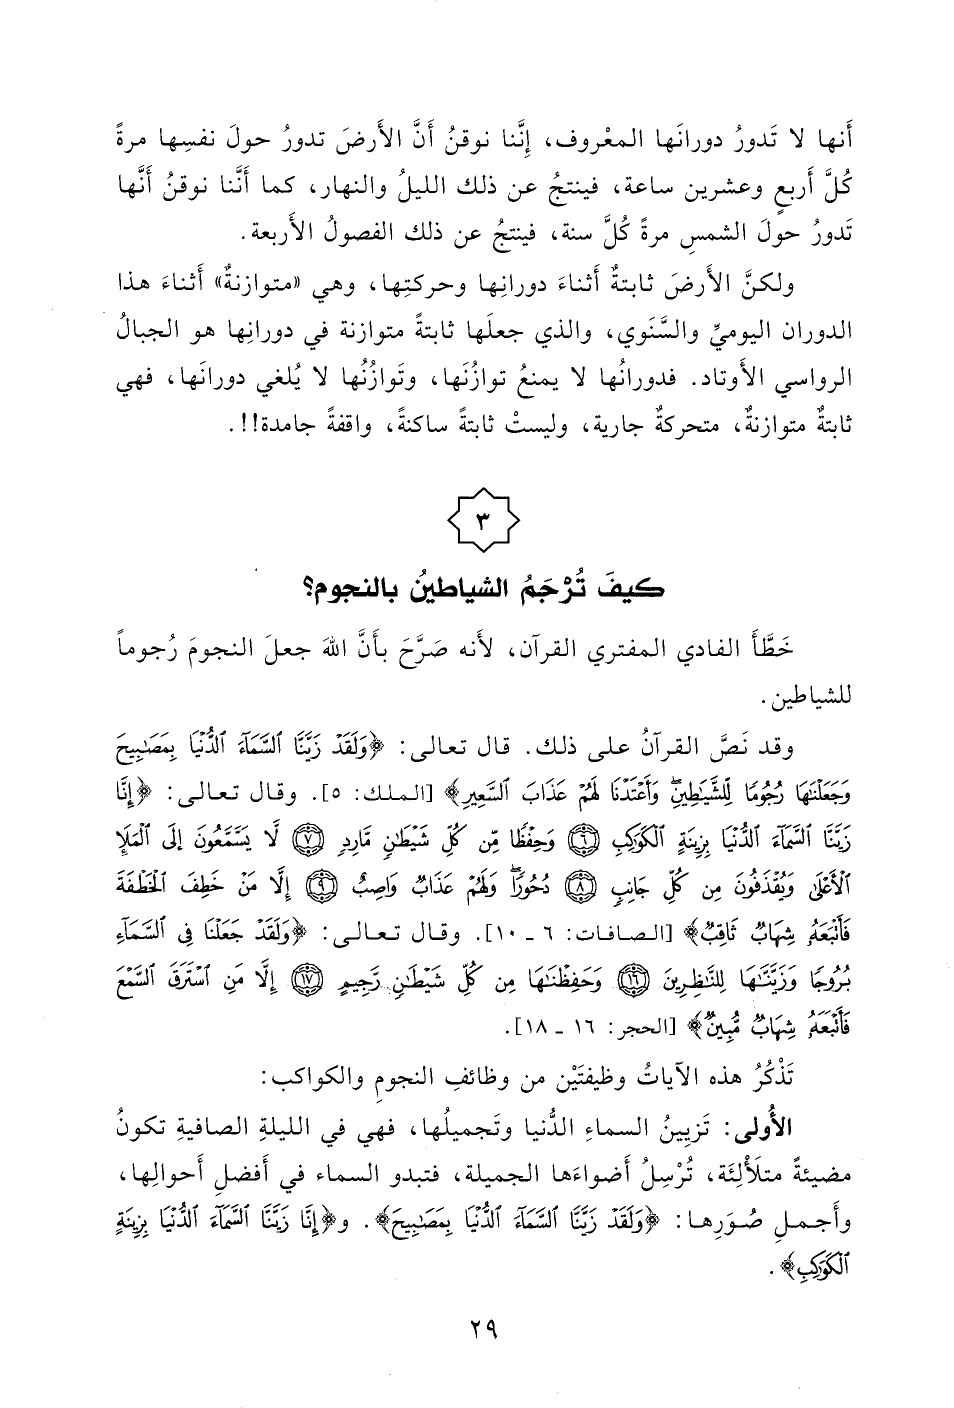 أَنها لا تَدورُ دورانَها المعْروف، إِنَّنا نوقنُ أَنَّ الأَرضَ تدورُ حولَ نفسِها مرةً
كُلَّ أَربعٍ وعشرين ساعة، فينتجُ عن ذلك الليلُ والنهار، كما أَنَّنا نوقنُ أَنَّها
تَدورُ حولَ الشمسِ مرةً كُلَّ سنة، فينتجُ عن ذلك الفصولُ الأَربعة.
ولكنَّ الأَرضَ ثابتةٌ أَثناءَ دورانِها وحركتِها، وهي «متوازنةٌ» أَثناءَ هذا
الدوران اليوميِّ والسَّنَوي، والذي جعلَها ثابتةً متوازنة في دورانِها هو الجبالُ
الرواسي الأَوتاد. فدورانُها لا يمنعُ توازنَها، وتَوازُنُها لا يُلغي دورانَها، فهي
ثابتةٌ متوازنةٌ، متحركةٌ جارية، وليستْ ثابتةً ساكنةً، واقفةً جامدة!!.
٣
كيفَ تُرْجَمُ الشياطينُ بالنجوم؟
خَطَّأَ الفادي المفتري القرآن، لأَنه صَرَّحَ بأَنَّ اللهَ جعلَ النجومَ رُجوماً
للشياطين.
وقد نَصَّ القرآنُ على ذلك. قال تعالى: ﴿وَلَقَدْ زَيَّنَّا ٱلسَّمَآءَ ٱلدُّنْيَا بِمَصَٰبِيحَ
وَجَعَلْنَٰهَا رُجُومًا لِّلشَّيَٰطِينِ وَأَعْتَدْنَا لَهُمْ عَذَابَ ٱلسَّعِيرِ﴾ [الملك: ٥]. وقال تعالى: ﴿إِنَّا
زَيَّنَّا ٱلسَّمَآءَ ٱلدُّنْيَا بِزِينَةٍ ٱلْكَوَاكِبِ ۝٦ وَحِفْظًا مِّن كُلِّ شَيْطَٰنٍ مَّارِدٍ ۝٧ لَّا يَسَّمَّعُونَ إِلَى ٱلْمَلَإِ
ٱلْأَعْلَىٰ وَيُقْذَفُونَ مِن كُلِّ جَانِبٍ ۝٨ دُحُورًا وَلَهُمْ عَذَابٌ وَاصِبٌ ۝٩ إِلَّا مَنْ خَطِفَ ٱلْخَطْفَةَ
فَأَتْبَعَهُۥ شِهَابٌ ثَاقِبٌ﴾ [الصافات: ٦ ـ ١٠]. وقال تعالى: ﴿وَلَقَدْ جَعَلْنَا فِى ٱلسَّمَآءِ
بُرُوجًا وَزَيَّنَّٰهَا لِلنَّٰظِرِينَ ۝١٦ وَحَفِظْنَٰهَا مِن كُلِّ شَيْطَٰنٍ رَّجِيمٍ ۝١٧ إِلَّا مَنِ ٱسْتَرَقَ ٱلسَّمْعَ
فَأَتْبَعَهُۥ شِهَابٌ مُّبِينٌ﴾ [الحجر: ١٦ ـ ١٨].
تَذْكُرُ هذه الآياتُ وظيفتَيْن من وظائفِ النجومِ والكواكب:
الأُولى: تَزيينُ السماءِ الدُّنيا وتَجميلُها، فهي في الليلةِ الصافيةِ تكونُ
مضيئةً متلَألِئَة، تُرْسِلُ أَضواءَها الجميلة، فتبدو السماء في أَفضلِ أَحوالِها،
وأَجملِ صُوَرِها: ﴿وَلَقَدْ زَيَّنَّا ٱلسَّمَآءَ ٱلدُّنْيَا بِمَصَٰبِيحَ﴾. و﴿إِنَّا زَيَّنَّا ٱلسَّمَآءَ ٱلدُّنْيَا بِزِينَةٍ
ٱلْكَوَاكِبِ﴾.
٢٩